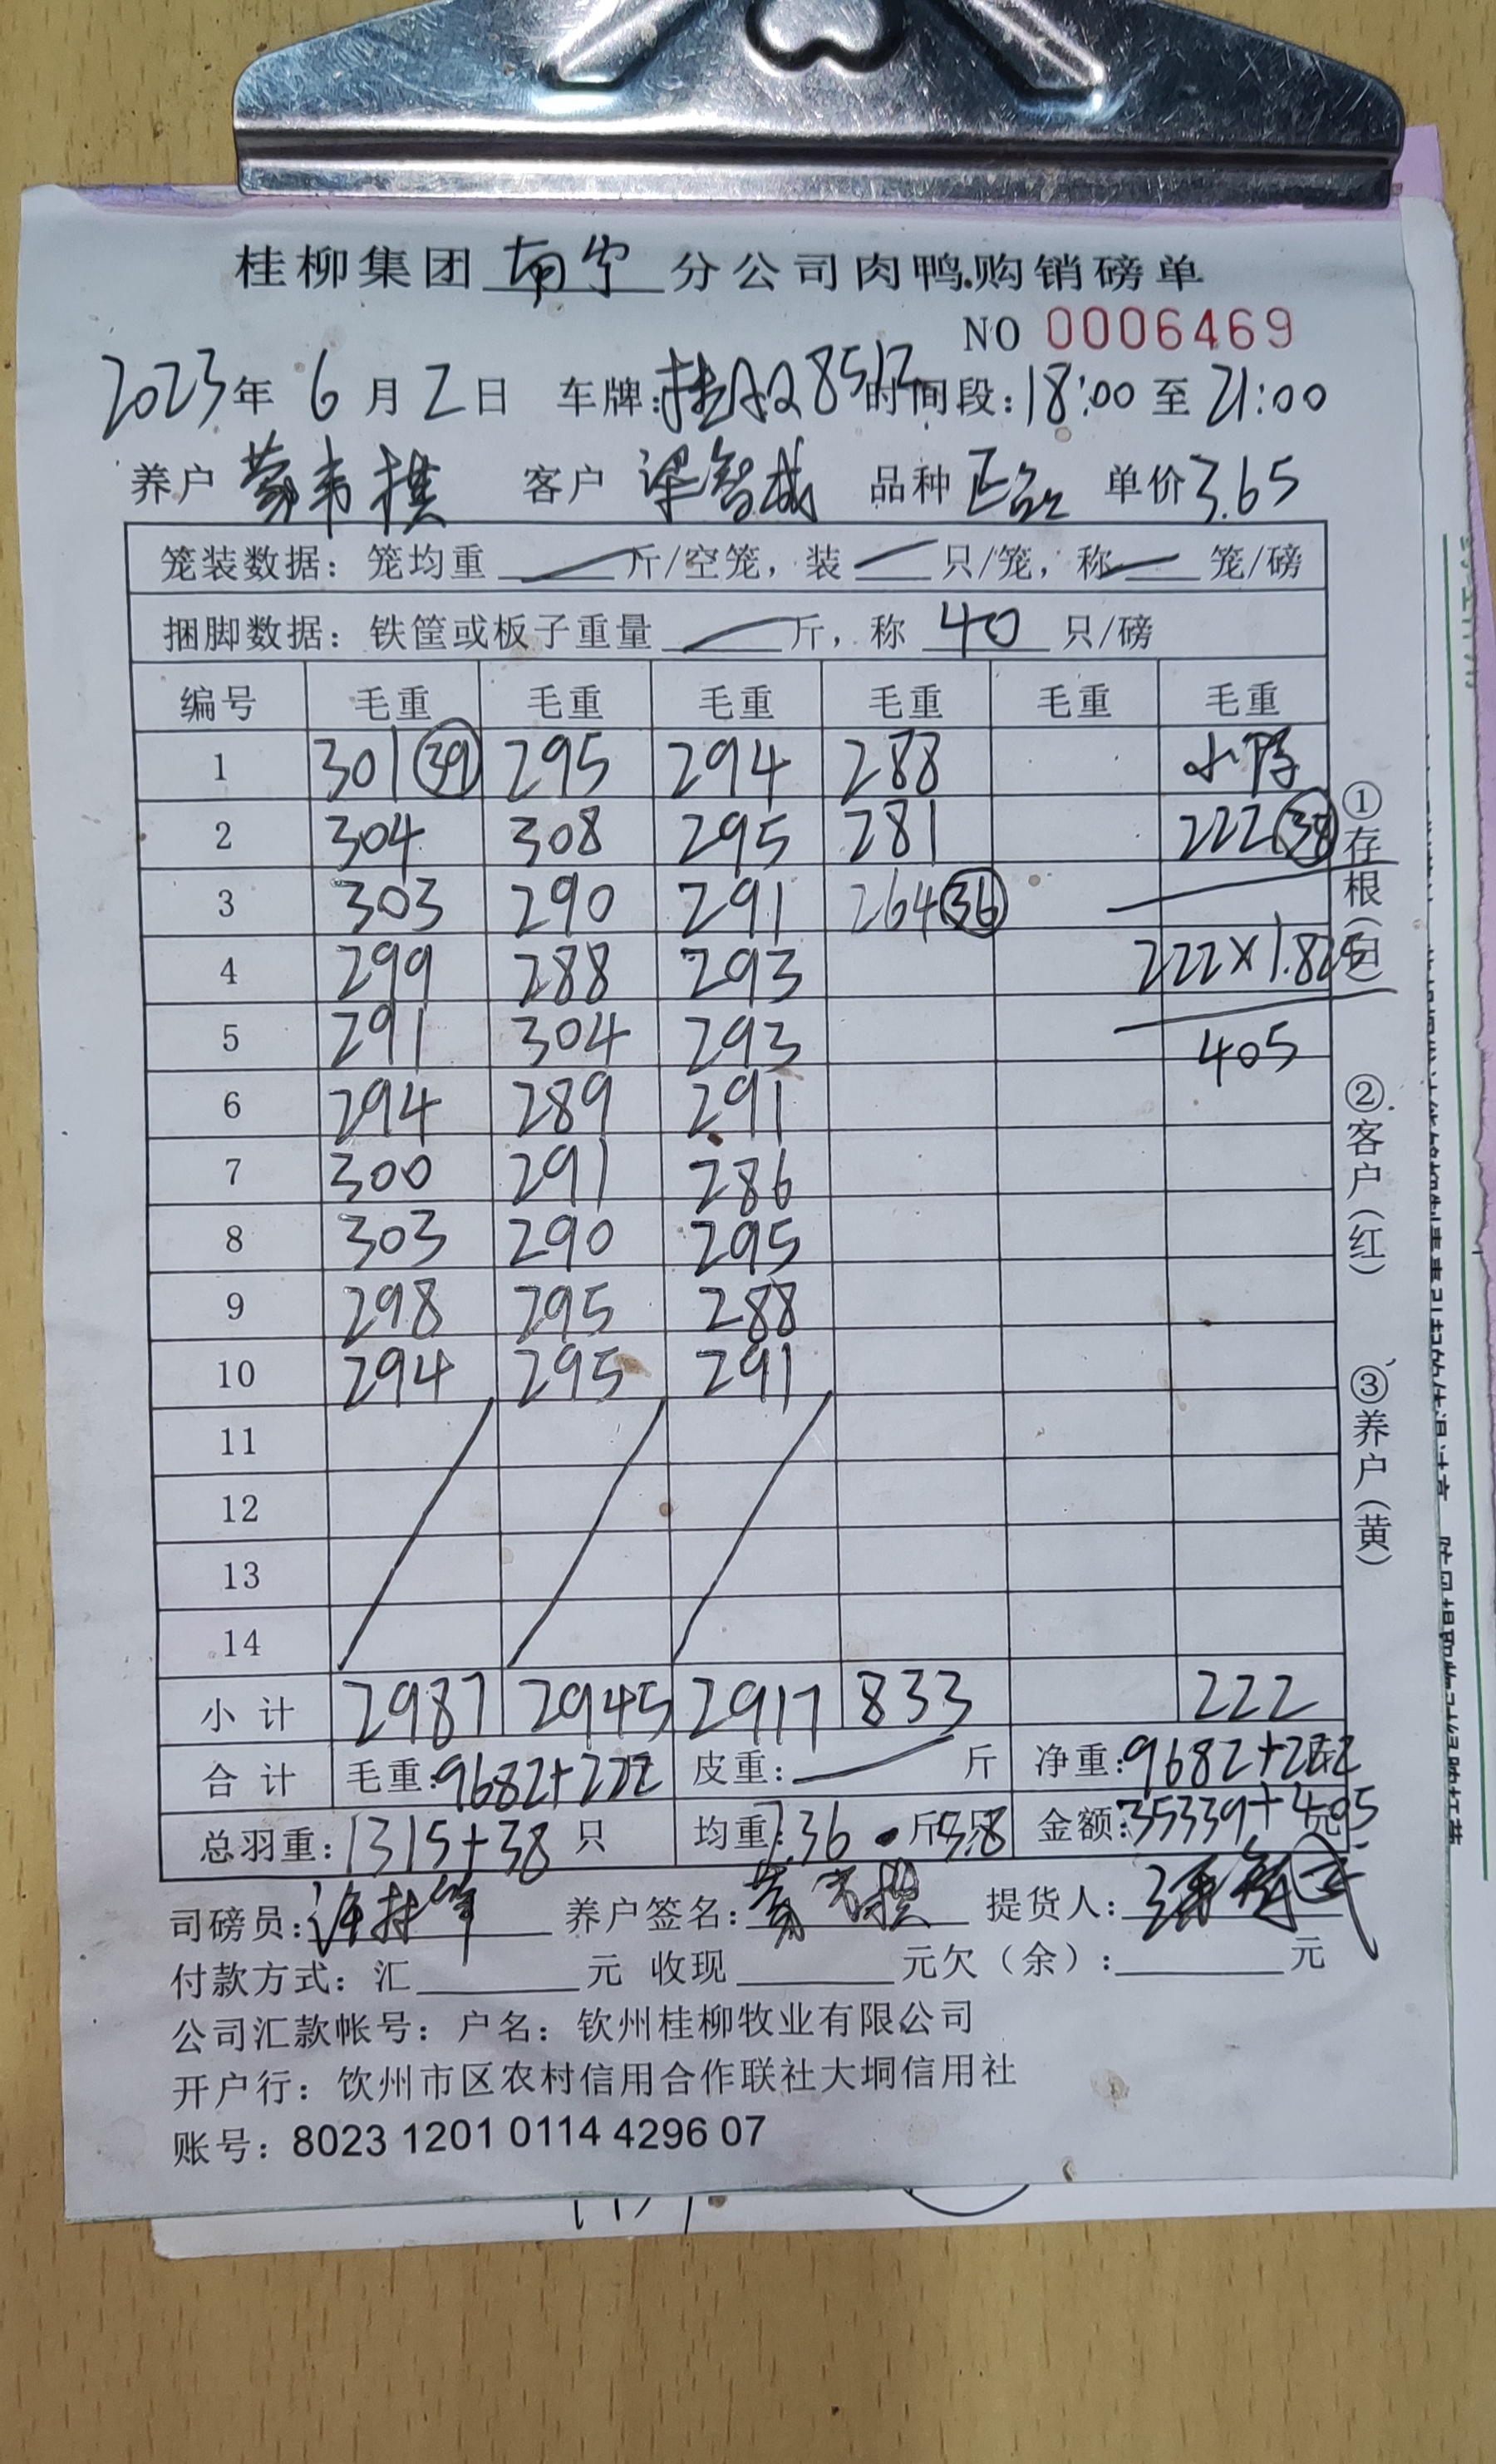 桂柳集团 南宁 分公司肉鸭购销磅单
NO 0006469
2023年 6月2日 车牌:桂AQ8512 时间段:18:00 至 21:00
养户 蒙韦棋 客户 梁智成 品种 正品 单价 3.65
笼装数据: 笼均重 斤/空笼, 装 只/笼, 称 笼/磅
捆脚数据: 铁筐或板子重量 斤, 称 40 只/磅
编号 毛重 毛重 毛重 毛重 毛重 毛重
1 301 39 295 294 288 小隆
2 304 308 295 281 222 38
3 303 290 291 264 36
4 299 288 293 222×1.825
5 291 304 293 405
6 294 289 291
7 300 291 286
8 303 290 295
9 298 295 288
10 294 295 291
11
12
13
14
小计 2987 2945 2917 833 222
合计 毛重:9682+222 皮重: 斤 净重:9682+222
总羽重:1315+38 只 均重:7.36 斤 5.8 金额:35339+405元
司磅员: 养户签名: 提货人:
付款方式: 汇 元 收现 元欠(余): 元
公司汇款帐号: 户名: 钦州桂柳牧业有限公司
开户行: 饮州市区农村信用合作联社大垌信用社
账号: 8023 1201 0114 4296 07
①存根(白)
②客户(红)
③养户(黄)